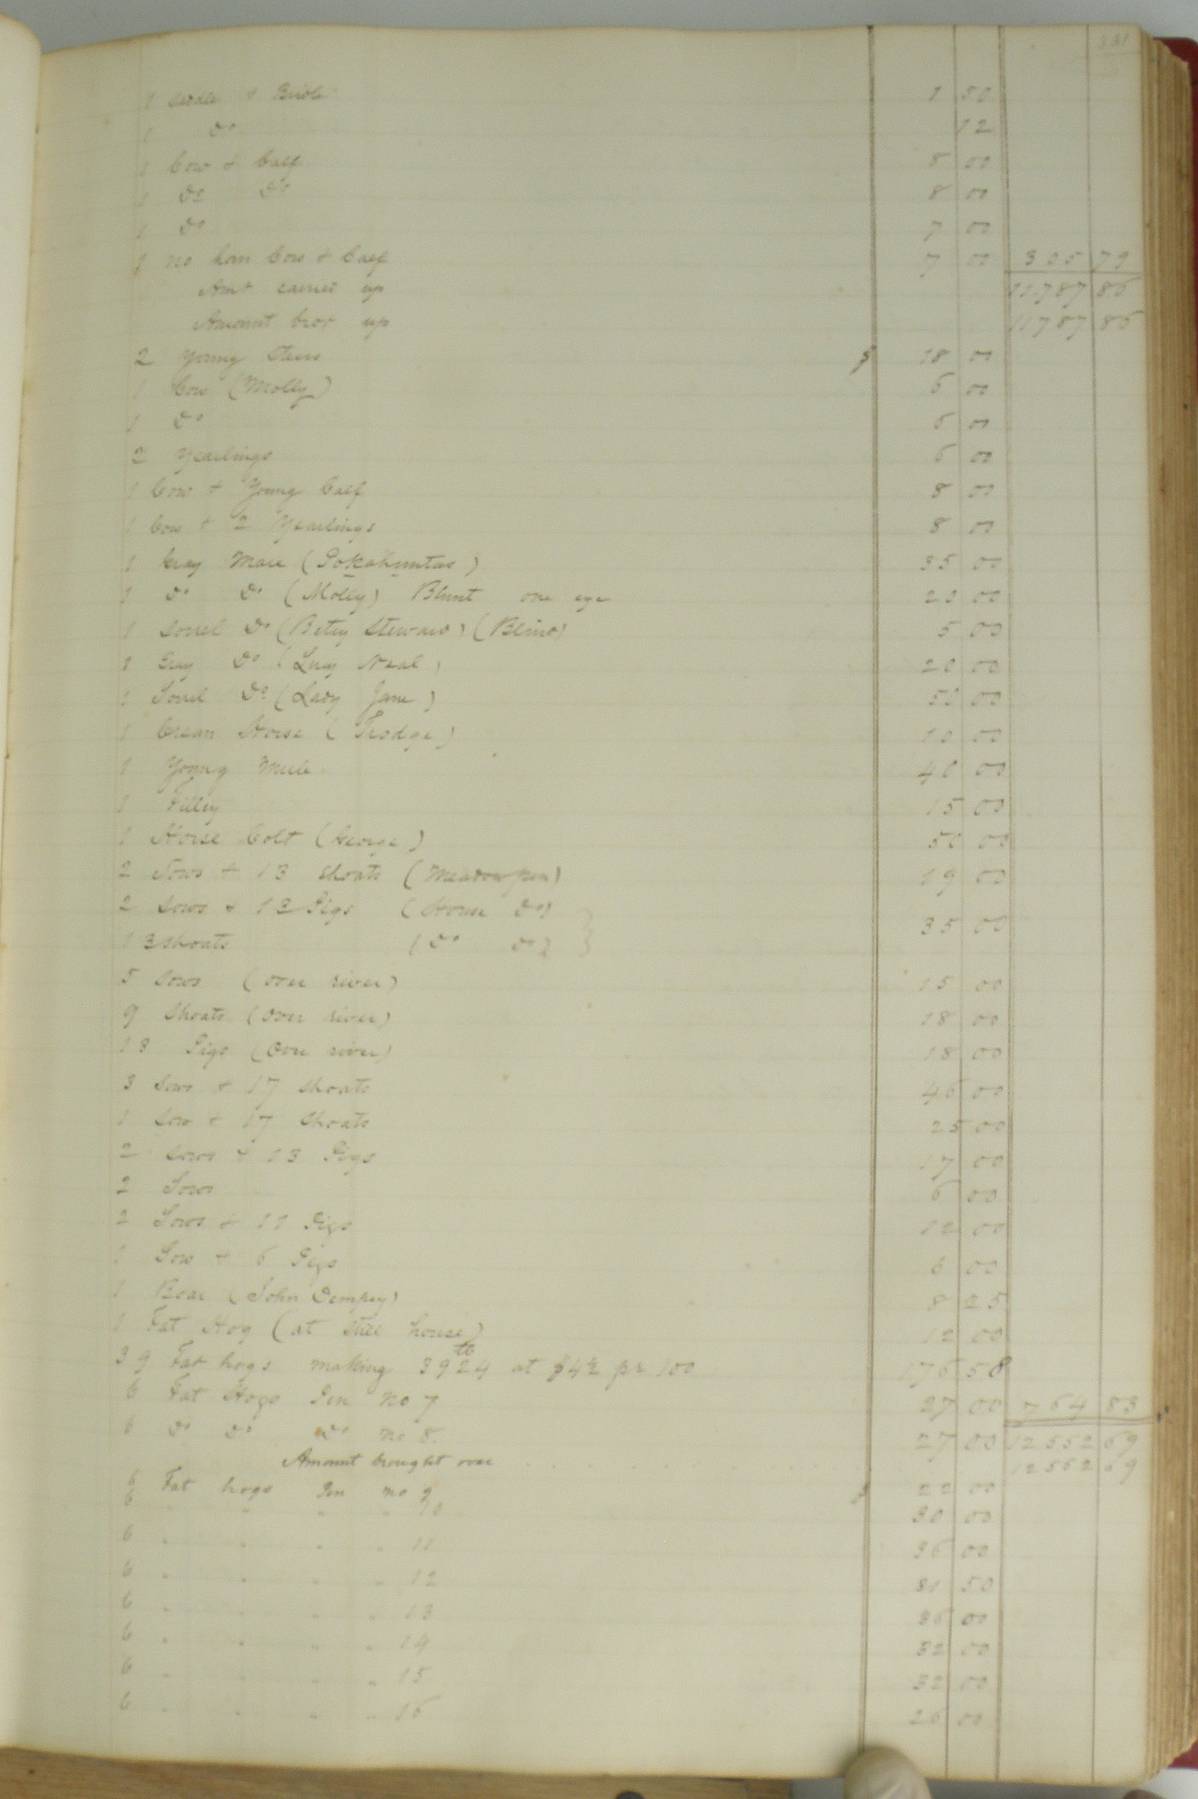 331
1 Saddle & Bridle 1 50
1 Do 12
1 Cow & Calf 8 00
1 Do Do 8 00
1 Do 7 00
1 no horn Cow & Calf 7 00 325 79
Amt carried up 11787 86
Amount bror up 11787 86
2 Young Steers $ 18 00
1 Cow (Molly) 6 00
1 Do 6 00
2 Yearlings 6 00
1 Cow & Young Calf 8 00
1 Cow & 2 Yearlings 8 00
1 Gray Mare (Pokahuntas) 35 00
1 Do Do (Molly) Blunt one eye 20 00
1 Sorrel Do (Betsy Steward) (Blind) 5 00
1 Gray Do (Lucy Neal) 20 00
1 Sorrel Do (Lady Jane) 50 00
1 Cream Horse ( ) 10 00
1 Young Mule 40 00
1 Filley 15 00
1 Horse Colt (George) 50 00
2 Sows & 13 Shoats (Meadow pen) 19 00
2 Sows & 12 Pigs (House Do)
13 Shoats (Do Do) 35 00
5 Sows (over river) 15 00
9 Shoats (over river) 18 00
18 Pigs (over river) 18 00
3 Sows & 17 Shoats 46 00
1 Sow & 17 Shoats 25 00
2 Sows & 13 Pigs 17 00
2 Sows 6 00
2 Sows & 11 Pigs 12 00
1 Sow & 6 Pigs 6 00
1 Boar (John Dempsy) 8 25
1 Fat Hog (at Still house) 12 00
39 Fat hogs making 3924 lb at $4½ pr 100 176 58
6 Fat Hogs Pen No 7 27 00 764 83
6 Do Do Do No 8 27 00 12552 69
Amount brought over 12552 69
6 Fat hogs Pen No 9 $ 22 00
6 " " " " 10 30 00
6 " " " " 11 36 00
6 " " " " 12 31 50
6 " " " " 13 36 00
6 " " " " 14 32 00
6 " " " " 15 32 00
6 " " " " 16 26 00